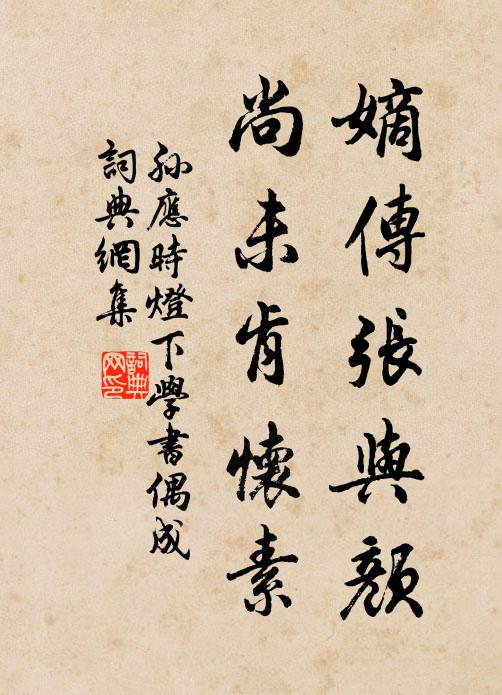 嫡傳張與顏
尚未肯懷素
孫應時燈下學書偶成
詞典網集
詞典网印